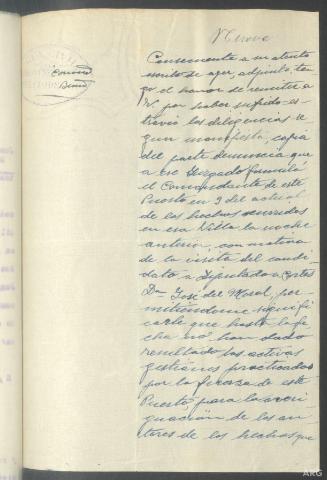 Consecuente a su atento
escrito de ayer, adjunto ten-
go el honor de remitir a
V. por haber sufrido es-
travio las diligencias se
gun manifiesta, copia
del parte denuncia que
a ese Juzgado formuló
el Comandante de este
Puesto en 9 del actual
de los hechos ocurridos
en esa Villa la noche
anterior, con motivo
de la visita del candi-
dato a Diputado a Cortes
Dn. José del Moral, per-
mitiendome signifi
carle que hasta la fe-
cha no han dado
resultado las activas
gestiones practicadas
por la fuerza de este
Puesto para la averi
guación de los au-
tores de los hechos que
ARG